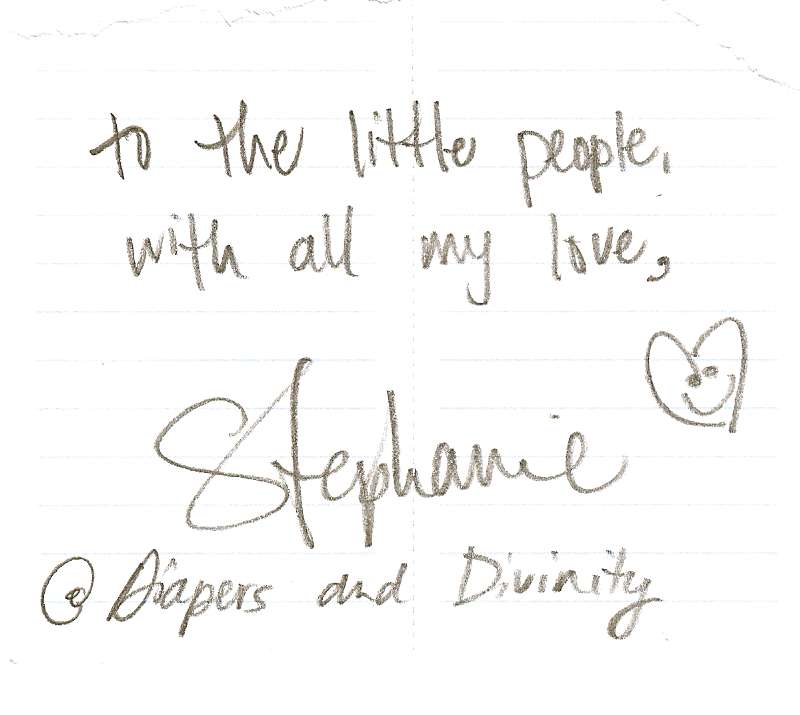 to the little people,
with all my love,
Stephanie
@ Diapers and Divinity